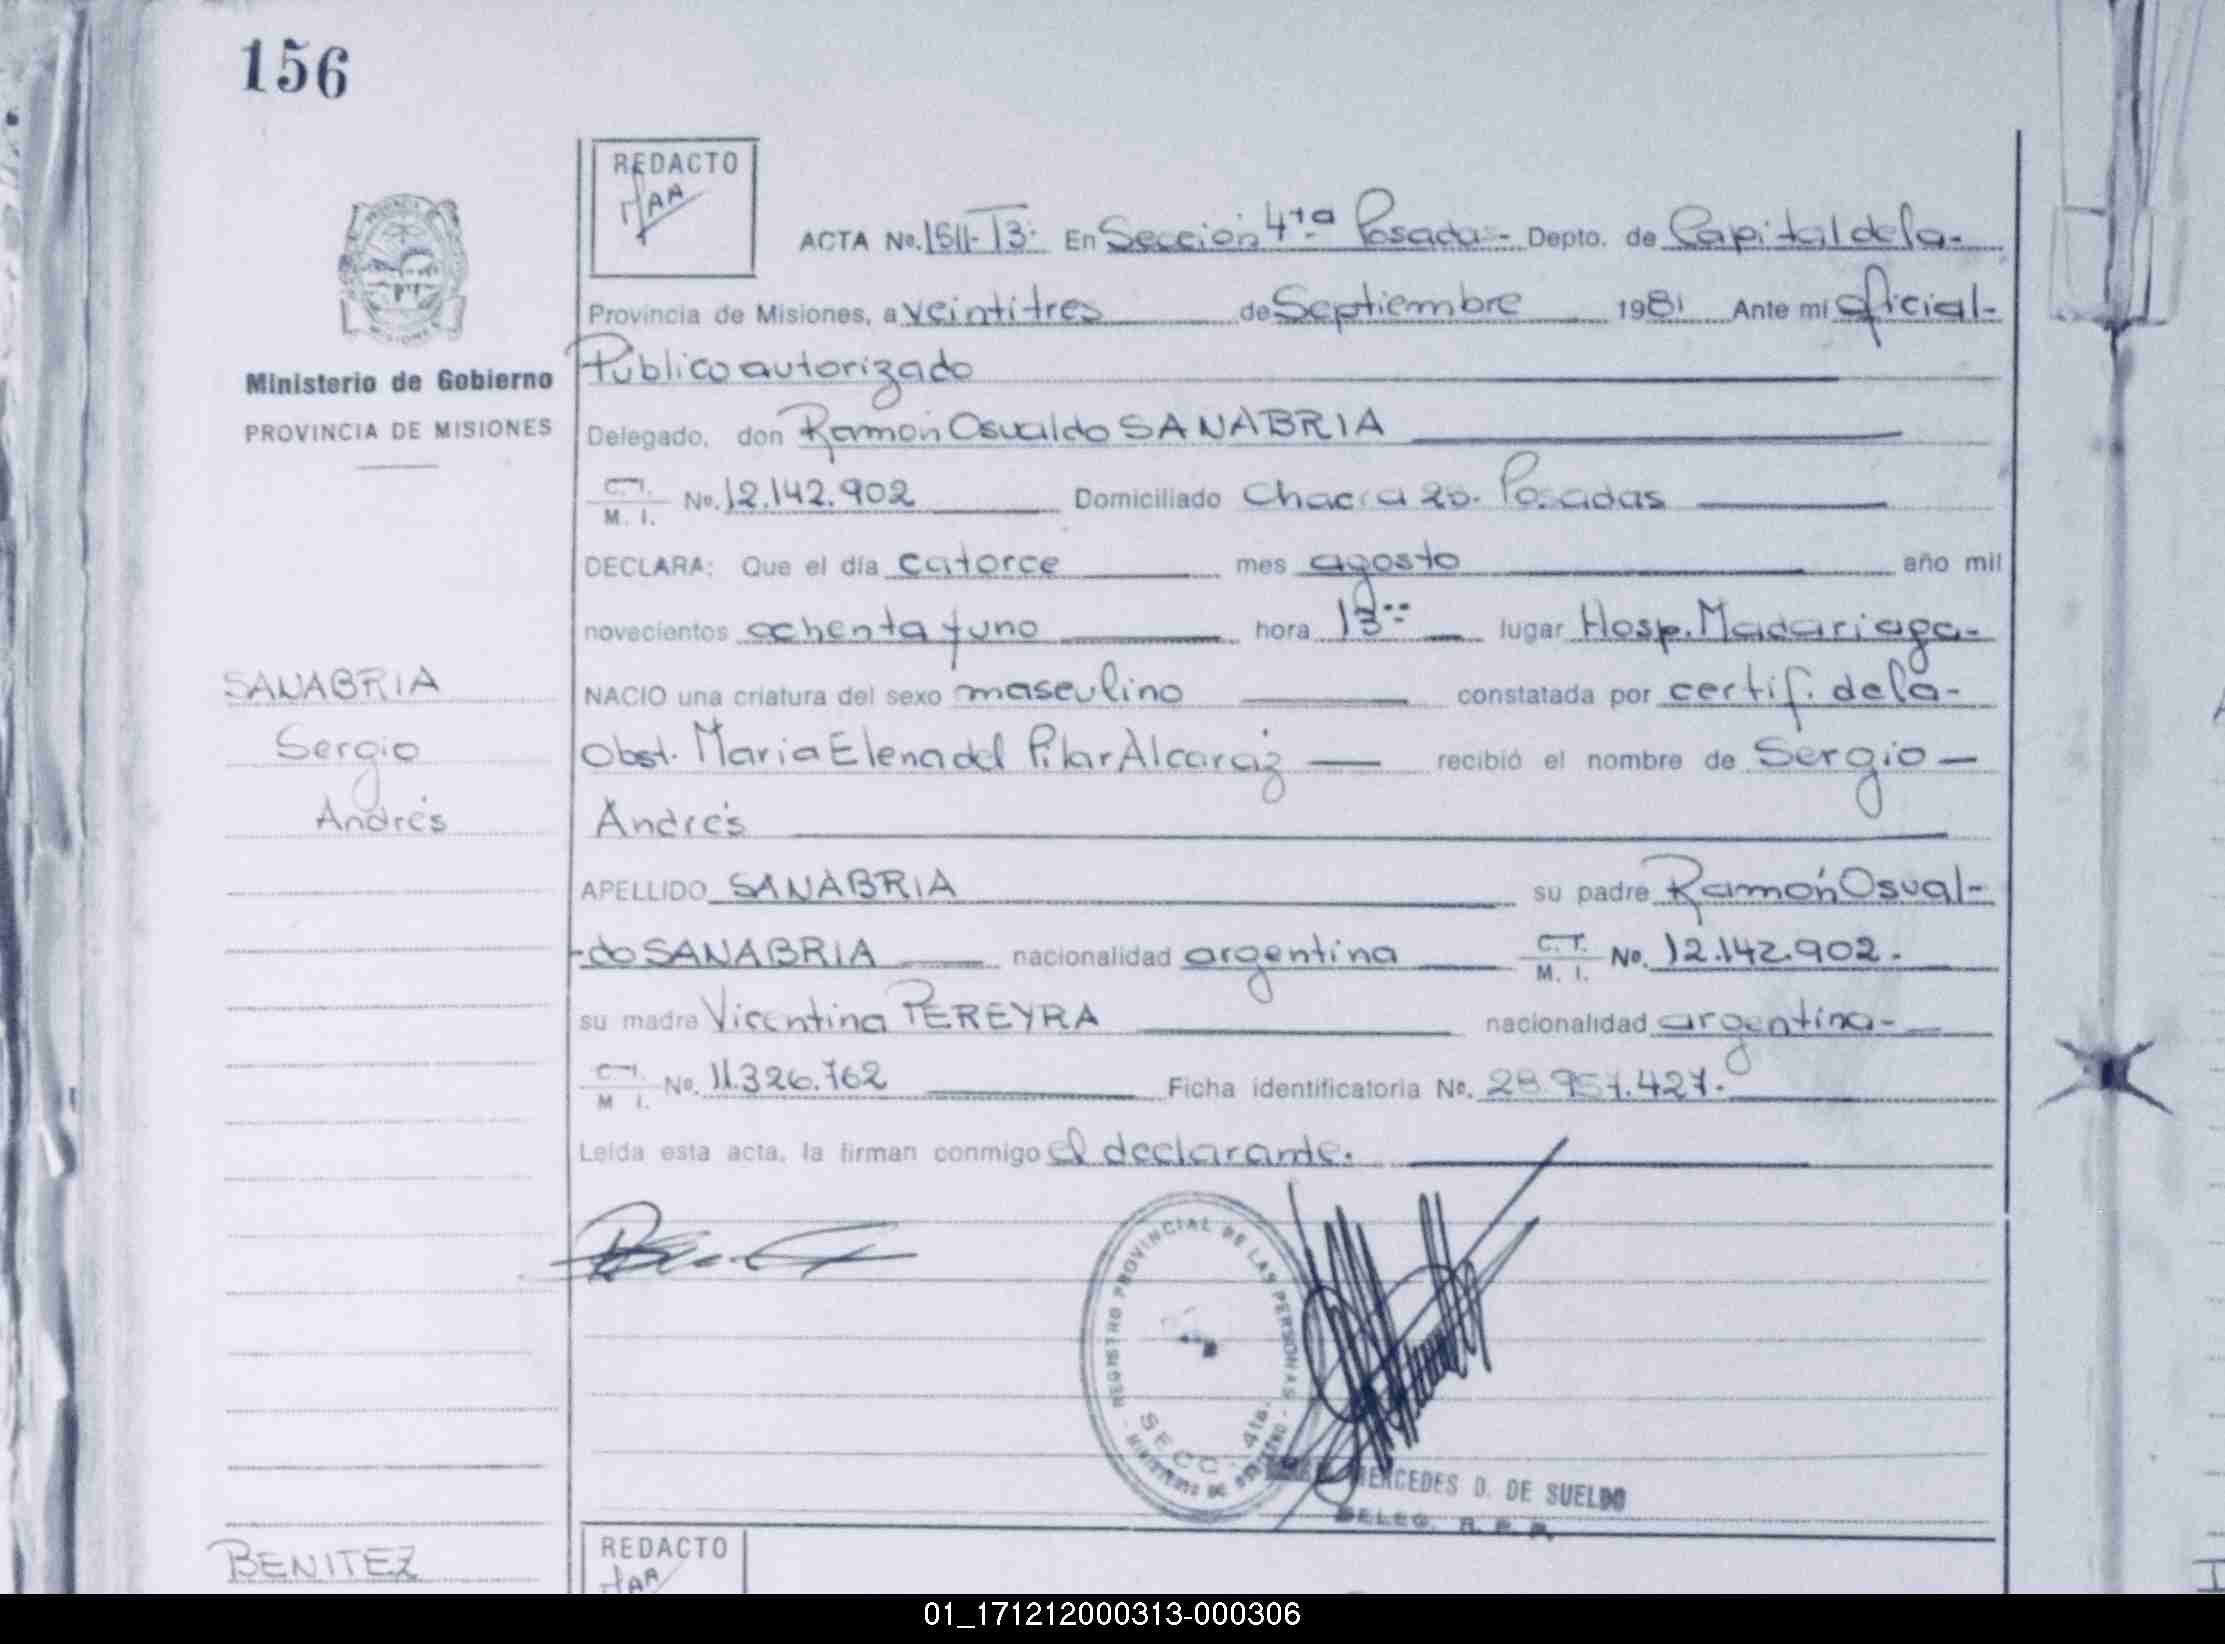 156
REDACTO
ACTA No. 1511-T3- En Sección 4ta Posadas- Depto. de Capital de la-
Provincia de Misiones, a veintitres de Septiembre 1981 Ante mi oficial-
Público autorizado
Ministerio de Gobierno
PROVINCIA DE MISIONES
Delegado, don Ramón Osvaldo SANABRIA
C.I. M. I. No. 12.142.902 Domiciliado Chacra 20. Posadas
DECLARA: Que el día catorce mes agosto año mil
novecientos ochenta y uno hora 13:: lugar Hosp. Madariaga-
SANABRIA
NACIO una criatura del sexo masculino constatada por certif. de la-
Sergio
Obst. Maria Elena del Pilar Alcaraz recibió el nombre de Sergio
Andrés
Andrés
APELLIDO SANABRIA su padre Ramón Osval-
-do SANABRIA nacionalidad argentina C.I. M. I. No. 12.142.902.
su madre Vicentina PEREYRA nacionalidad argentina-
C.I. M I. No. 11.326.762 Ficha identificatoria No. 28.957.427.
Leída esta acta, la firman conmigo el declarante.
REGISTRO PROVINCIAL DE LAS PERSONAS
SECC. 4ta.
MINISTERIO DE GOBIERNO
MERCEDES D. DE SUELDO
DELEG. R. P. P.
BENITEZ
REDACTO
01_171212000313-000306